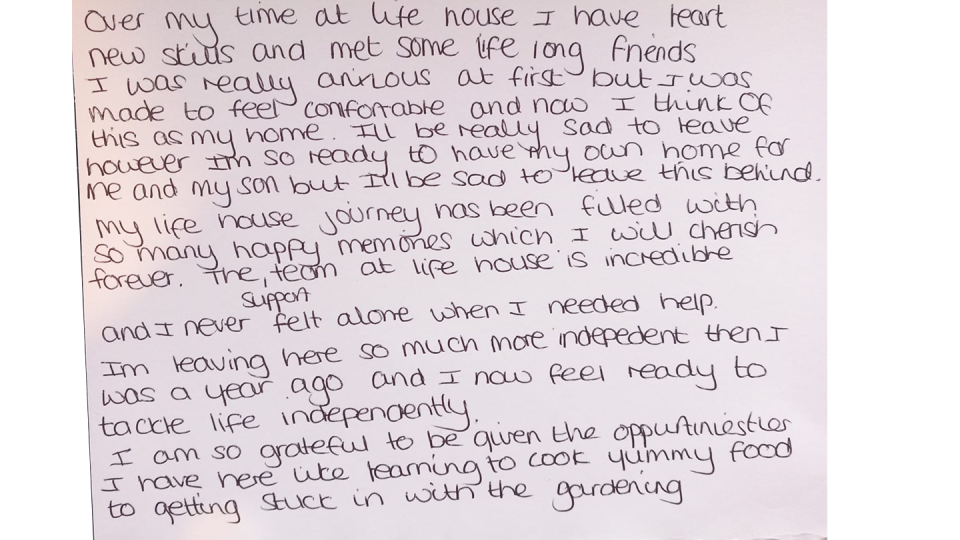 Over my time at life house I have leart
new skills and met some life long friends
I was really anxious at first but I was
made to feel confortable and now I think of
this as my home. I'll be really sad to leave
however I'm so ready to have my own home for
me and my son but I'll be sad to leave this behind.
My life house journey has been filled with
so many happy memories which I will cherish
forever. The, team at life house is incredible
support
and I never felt alone when I needed help.
Im leaving here so much more indepedent then I
was a year ago and I now feel ready to
tackle life independently.
I am so grateful to be given the
I have here like learning to cook yummy food
to getting stuck in with the gardening